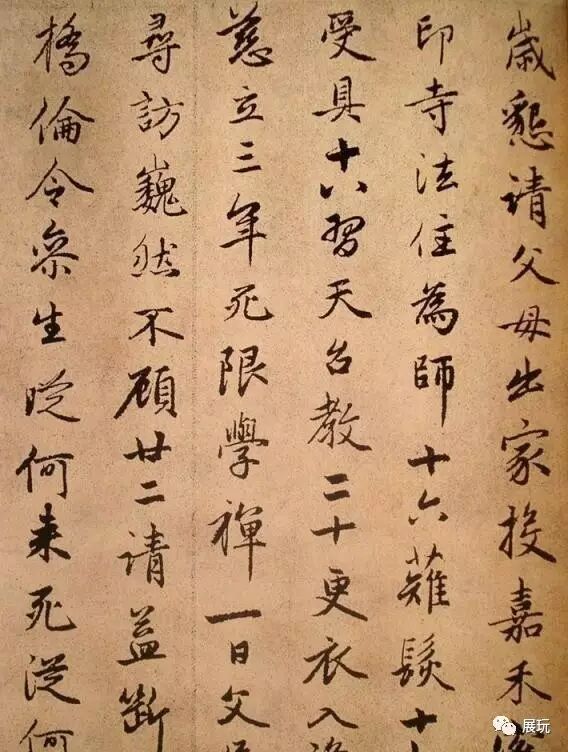 歲懇請父母出家投嘉禾
印寺法住為師十六薙髮十
受具十八習天台教二十更衣入
慈立三年死限學禪一日父
尋訪巍然不顧廿二請益斷
橋倫令參生從何來死從何
展玩